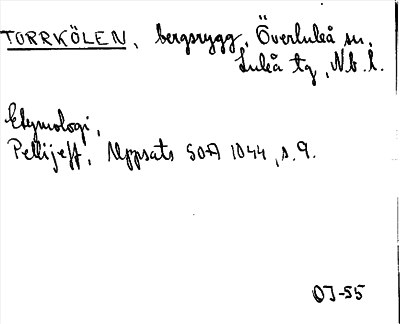 TORRKÖLEN, bergsrygg, Överluleå sn,
Luleå tg, Nb. l.
Etymologi,
Pellijeff, Uppsats SOA 1044, s. 9.
OJ-55